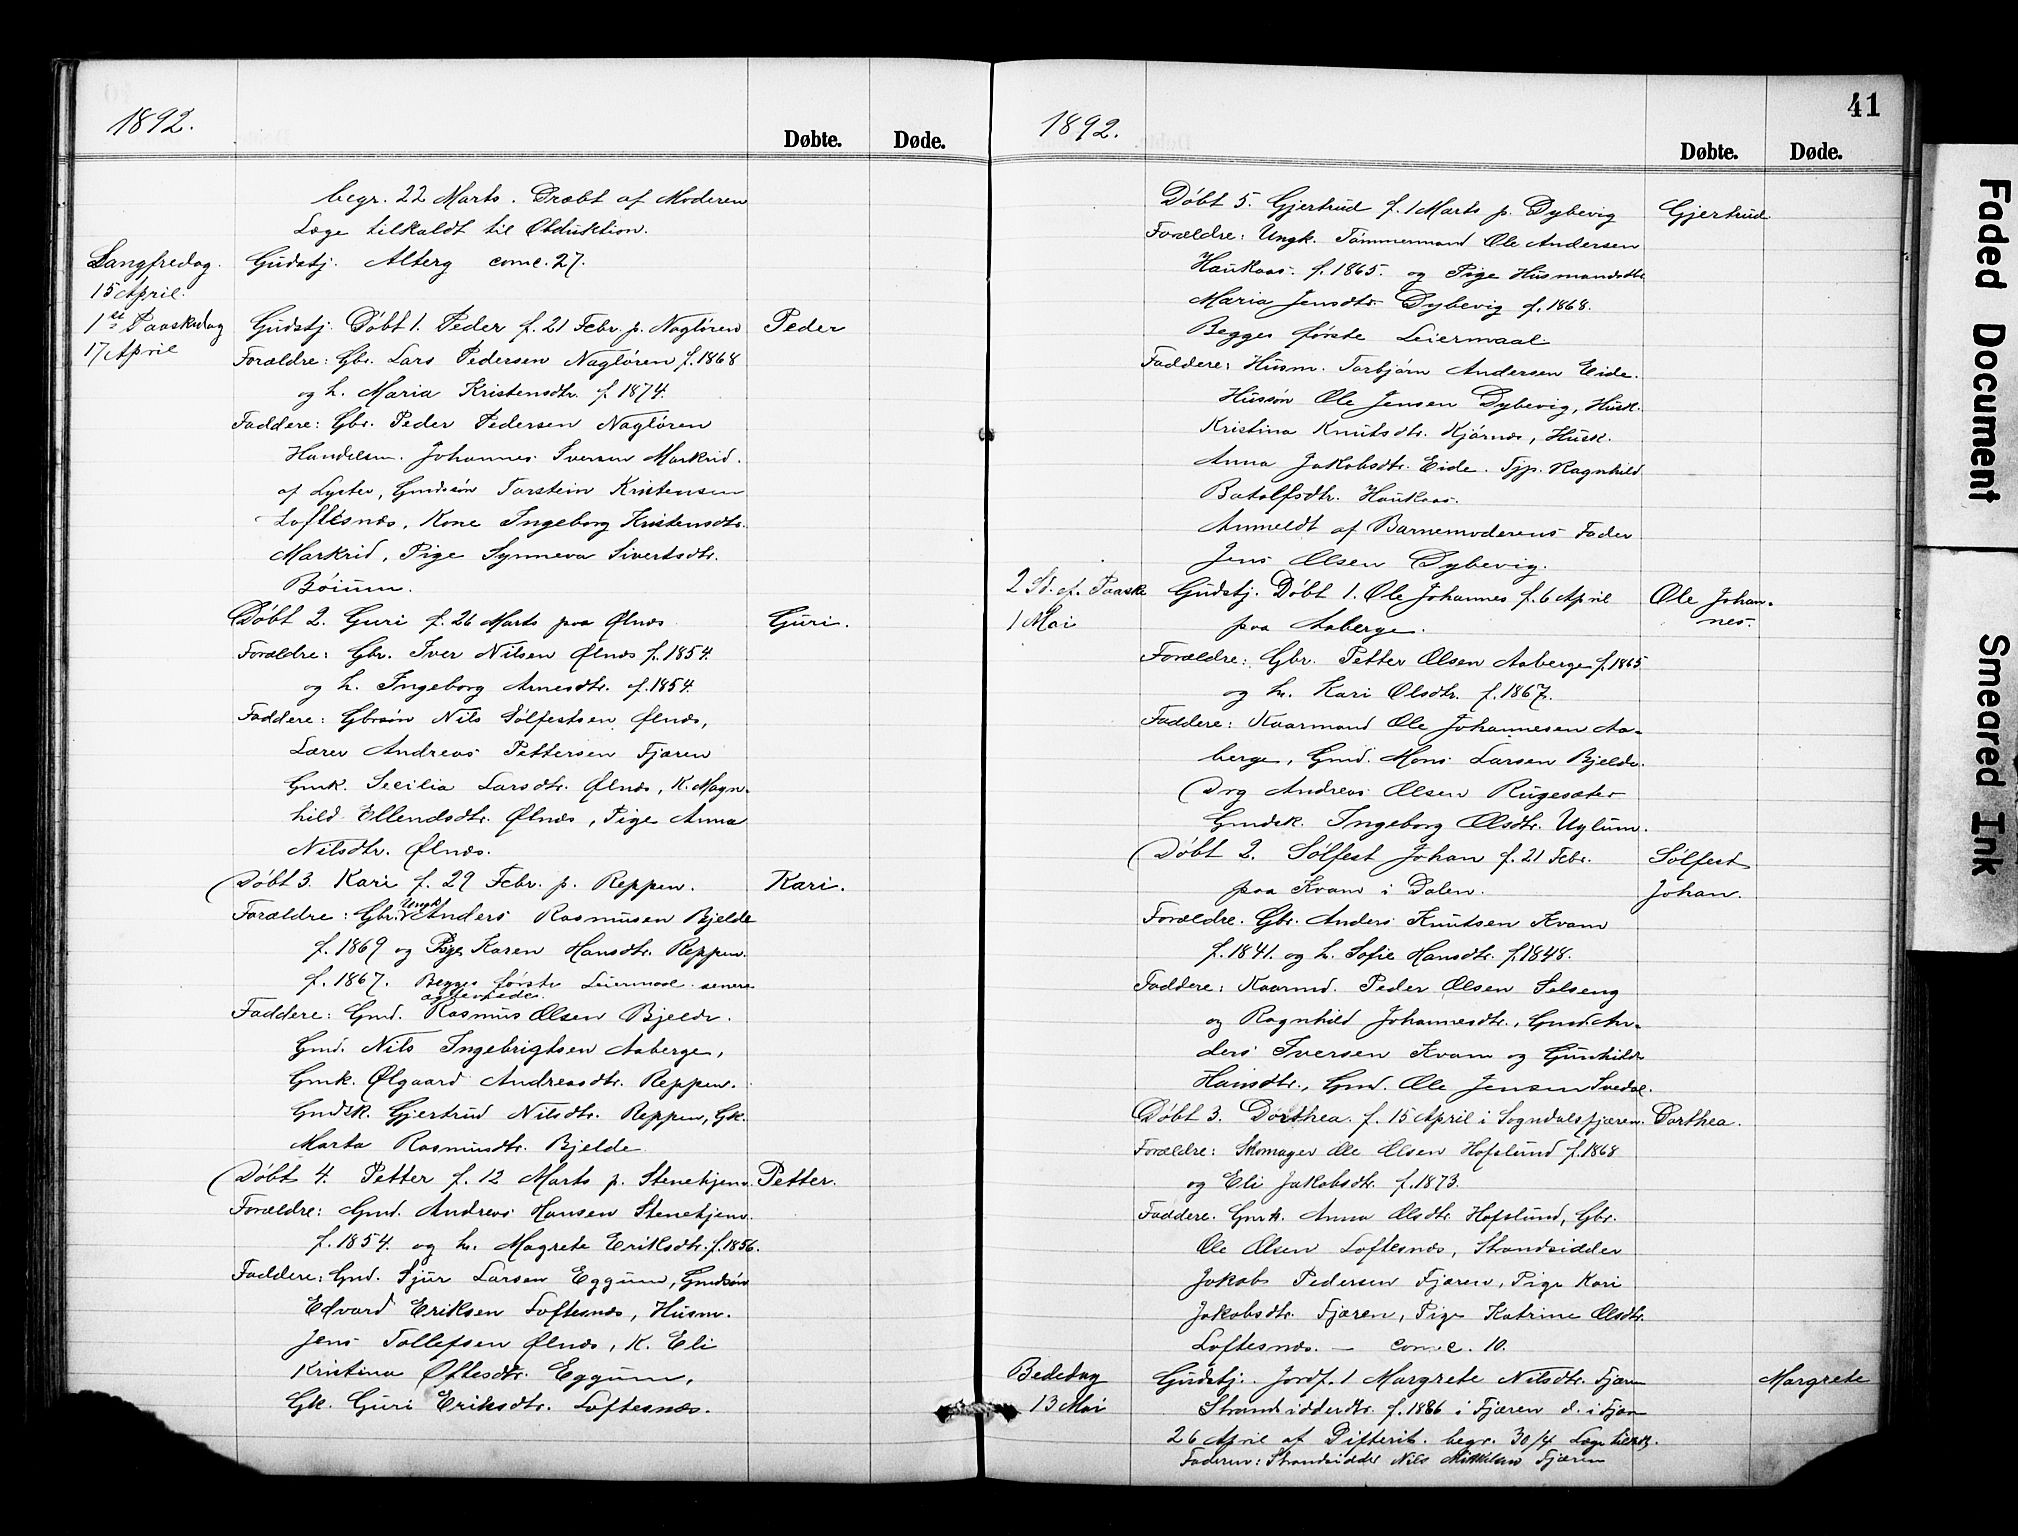 1892.
Døbte. Døde.
begr. 22 Marts. Dræbt af Moderen
Læge tilkaldt til Obduktion.
Langfredag. Gudstj. Alterg comc. 27.
15 April.
1ste Paaskedag Gudstj. Døbt 1. Peder f. 21 Febr. p. Nagløren Peder
17 April
Forældre: Gbr. Lars Pedersen Nagløren f. 1868
og h. Maria Kristensdtr. f 1874.
Faddere: Gbr. Peder Pedersen Nagløren
Handelsm. Johannes Iversen Markrid.
af Lyster, Gmdssøn Torstein Kristensen
Loftesnæs, Kone Ingeborg Kristensdtr.
Markrid, Pige Synneva Sivertsdtr.
Bøium.
Døbt 2. Guri f. 26 Marts paa Ølnæs Guri.
Forældre: Gbr. Iver Nilsen Ølnæs f. 1854.
og h. Ingeborg Arnesdtr. f. 1854.
Faddere: Gbrsøn Nils Sølfestsen Ølnæs,
Lærer Andreas Pettersen Fjæren
Gmk. Secilia Larsdtr. Ølnæs, K. Magn-
hild Ellendsdtr. Ølnæs, Pige Anna
Nilsdtr. Ølnæs.
Døbt 3. Kari f. 29 Febr. p. Reppen. Kari.
Forældre: Gbr. Ungk. Anders Rasmusen Bjelde
f. 1869 og Pige Karen Hansdtr. Reppen.
f. 1867. Begges første Leiermaal senere
ægteviede.
Faddere: Gmd. Rasmus Olsen Bjelde.
Gmd. Nils Ingebrigtsen Aaberge,
Gmk. Ølgaard Andreasdtr. Reppen.
Gmdsk. Gjertrud Nilsdtr. Reppen, Gk.
Marta Rasmusdtr. Bjelde.
Døbt 4. Petter f. 12 Marts p. Stenehjem. Petter.
Forældre: Gmd. Andreas Hansen Stenehjem.
f. 1854. og h. Magrete Eriksdtr. f. 1856.
Faddere: Gmd. Sjur Larsen Eggum, Gmdssøn
Edvard Eriksen Loftesnæs, Husm.
Jens Tollefsen Ølnæs, K. Eli
Kristina Oftesdtr. Eggum,
Gk. Guri Eriksdtr. Loftesnæs.
41
1892.
Døbte. Døde.
Døbt 5. Gjertrud f. 1 Marts p. Dybevig Gjertrud
Forældre: Ungk. Tømmermand Ole Andersen
Haukaas. f. 1865. og Pige Husmandsdtr.
Maria Jensdtr. Dybevig f. 1868.
Begges første Leiermaal.
Faddere: Husm. Torbjørn Andersen Eide.
Hussøn Ole Jensen Dybevig, Husk.
Kristina Knutsdtr. Kjørnæs, Husk.
Anna Jakobsdtr. Eide. Tjp. Ragnhild
Botolfsdtr. Haukaas.
Anmeldt af Barnemoderens Fader
Jens Olsen Dybevig.
2 Sd. ef. Paaske Gudstj. Døbt 1. Ole Johannes f. 6 April Ole Johan-
nes.
1 Mai paa Aaberge.
Forældre: Gbr. Petter Olsen Aaberge f. 1865
og h. Kari Olsdtr. f. 1867.
Faddere: Kaarmand Ole Johannesen Aa-
berge, Gmd. Mons Larsen Bjelde.
Drg Andreas Olsen Rugesæter
Gmdsk. Ingeborg Olsdtr. Uglum.
Døbt 2. Sølfest Johan f. 21 Febr. Sølfest
paa Kvam i Dalen. Johan.
Forældre. Gbr. Anders Knutsen Kvam
f. 1841. og h. Sofie Hansdtr. f. 1848.
Faddere: Kaarmd. Peder Olsen Selseng
og Ragnhild Johannesdtr., Gmd An-
ders Iversen Kvam og Gunhilde
Hansdtr., Gmd. Ole Jensen Svedal.
Døbt 3. Dorthea. f. 15 April i Sogndalsfjæren. Dorthea.
Forældre: Skomager Ole Olsen Hofslund f. 1868
og Eli Jakobsdtr. f. 1873.
Faddere. Gmk. Anna Olsdtr. Hofslund, Gbr.
Ole Olsen Loftesnæs, Strandsidder
Jakob Pedersen Fjæren, Pige Kari
Jakobsdtr. Fjæren, Pige Katrine Olsdtr.
Loftesnæs. — comc. 10.
Bededag Gudstj. Jordf. 1 Margrete Nilsdtr. Fjæren Margrete
13 Mai Strandsidderdtr. f. 1886 i Fjæren d. i Fjæren
26 April af Difterit. begr. 30/4 Læge tilk.
Faderen: Strandsidder Nils Mikkelsen Fjæren
Faded Document
Smeared Ink